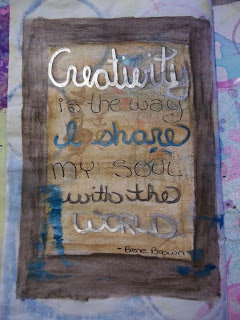 Creativity
is the way
I share
MY SOUL
with the
WORLD
- Brene Brown